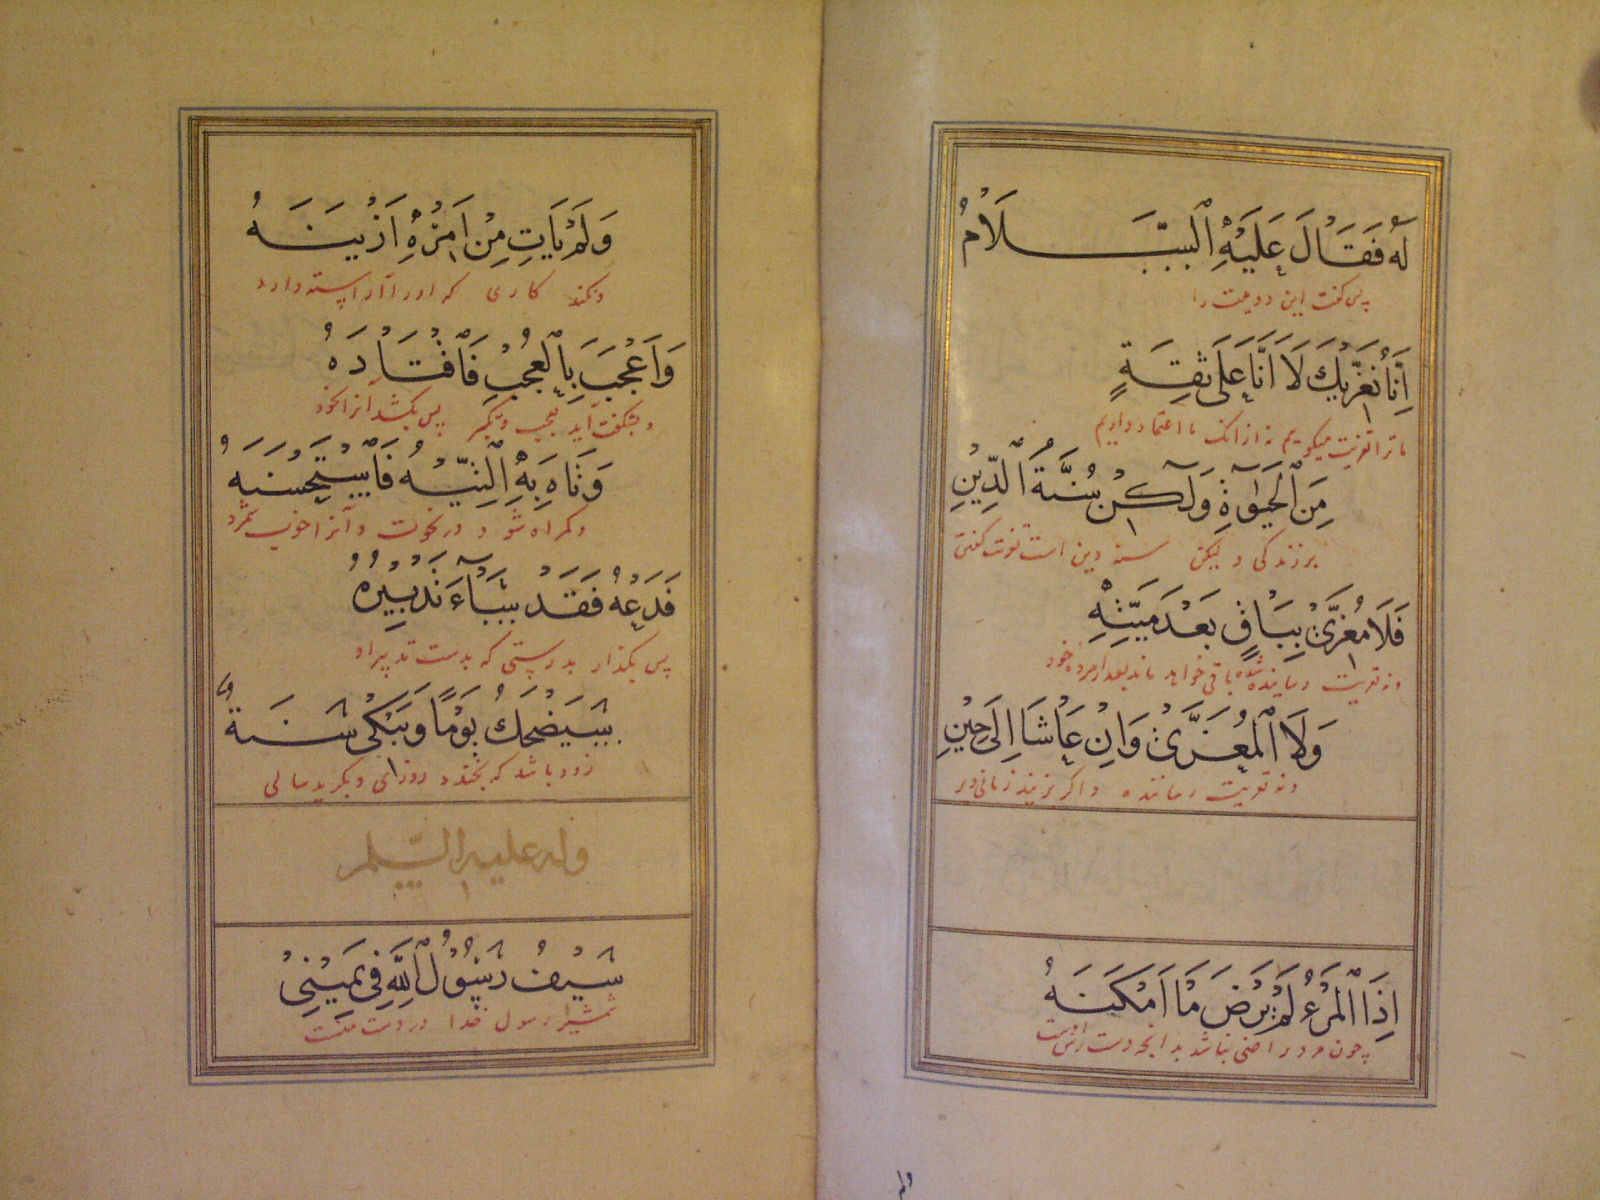 لَهُ فَقَالَ عَلَيْهِ ٱلسَّلَامُ
پس گفت این دو بیت را
إِنَّا نُعَزِّيكَ لَا أَنَّا عَلَى ثِقَةٍ
ما ترا تعزیت میگوییم نه از آنک ما اعتماد داریم
مِنَ ٱلْحَيٰوةِ وَلٰكِنْ سُنَّةُ ٱلدِّينِ
بر زندگی و لیکن سنة دین است تعزیت گفتن
فَلَا مُعَزَّىٰ بِبَاقٍ بَعْدَ مَيِّتِهِ
و نه تعزیت رسانیده شده باقی خواهد ماند بعد از مرده خود
وَلَا ٱلْمُعَزِّىْ وَإِنْ عَاشَا إِلَى حِيْنِ
و نه تعزیت رساننده و اگر بزیند زمانی دیر
إِذَا ٱلْمَرْءُ لَمْ يَرْضَ مَا أَمْكَنَهُ
چون مرد راضی نباشد بد آنچه دست
وَلَمْ يَأْتِ مِنْ أَمْرِهِ أَزْيَنَهُ
و نکند کاری که او را آراسته دارد
وَأَعْجَبَ بِٱلْعُجْبِ فَٱقْتَادَهُ
و بشگفت آید بعجب و تکبر پس بکشد آنرا بخود
وَتَاهَ بِهِ ٱلتِّيْهُ فَٱسْتَحْسَنَهُ
و گمراه شود در نخوت و آنرا خوب شمرد
فَدَعْهُ فَقَدْ سَآءَ تَدْبِيْرُهُ
پس بگذار بدرستی که بدست تدبیر او
سَيَضْحَكُ يَوْمًا وَيَبْكِىْ سَنَةً
زود باشد که بخندد روزی و بگرید سالی
وله عليه السّلم
سَيْفُ رَسُوْلِ ٱللهِ فِى يَمِيْنِىْ
شمشیر رسول خدا در دست منست